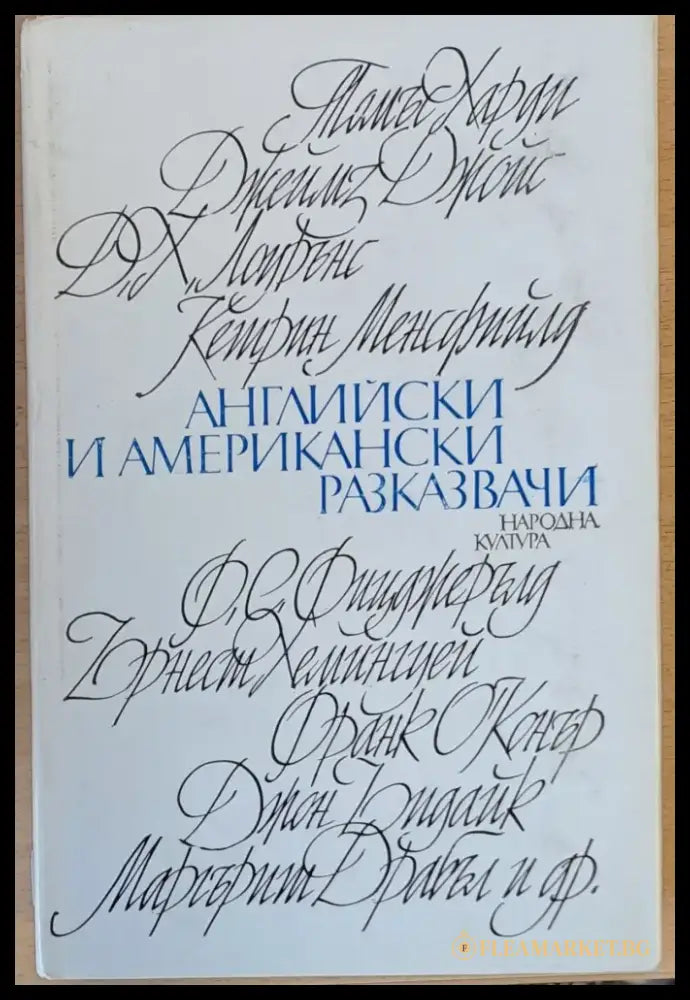 Томас Харди
Джеймз Джойс
Д. Х. Лоурънс
Кетрин Менсфийлд
АНГЛИЙСКИ
И АМЕРИКАНСКИ
РАЗКАЗВАЧИ
НАРОДНА
КУЛТУРА
Ф. С. Фицджералд
Ърнест Хемингуей
Франк О'Конър
Джон Ъпдайк
Маргърит Драбъл и др.
FLEAMARKET.BG